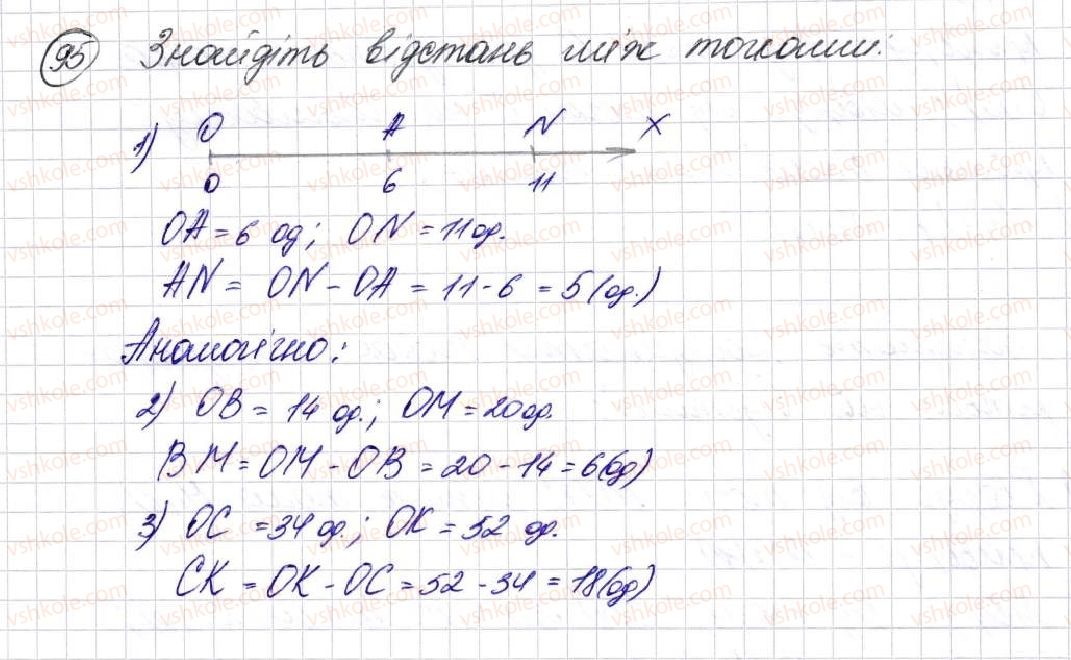 95 Знайдіть відстань між точками:
1) O A N X
0 6 11
OA = 6 од; ON = 11 од.
AN = ON - OA = 11 - 6 = 5 (од.)
Аналогічно:
2) OB = 14 од.; OM = 20 од.
BM = OM - OB = 20 - 14 = 6 (од)
3) OC = 34 од.; OK = 52 од.
CK = OK - OC = 52 - 34 = 18 (од)
vshkole.com